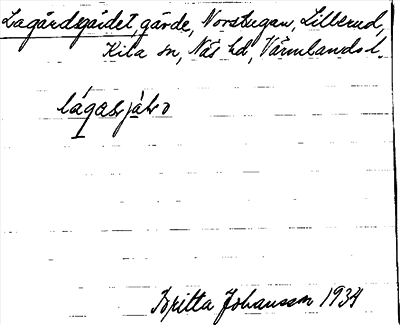 Lagårdsgärdet, gärde, Norstugan, Lillerud,
Kila sn, Näs hd, Värmlands l.
Britta Johansson 1934